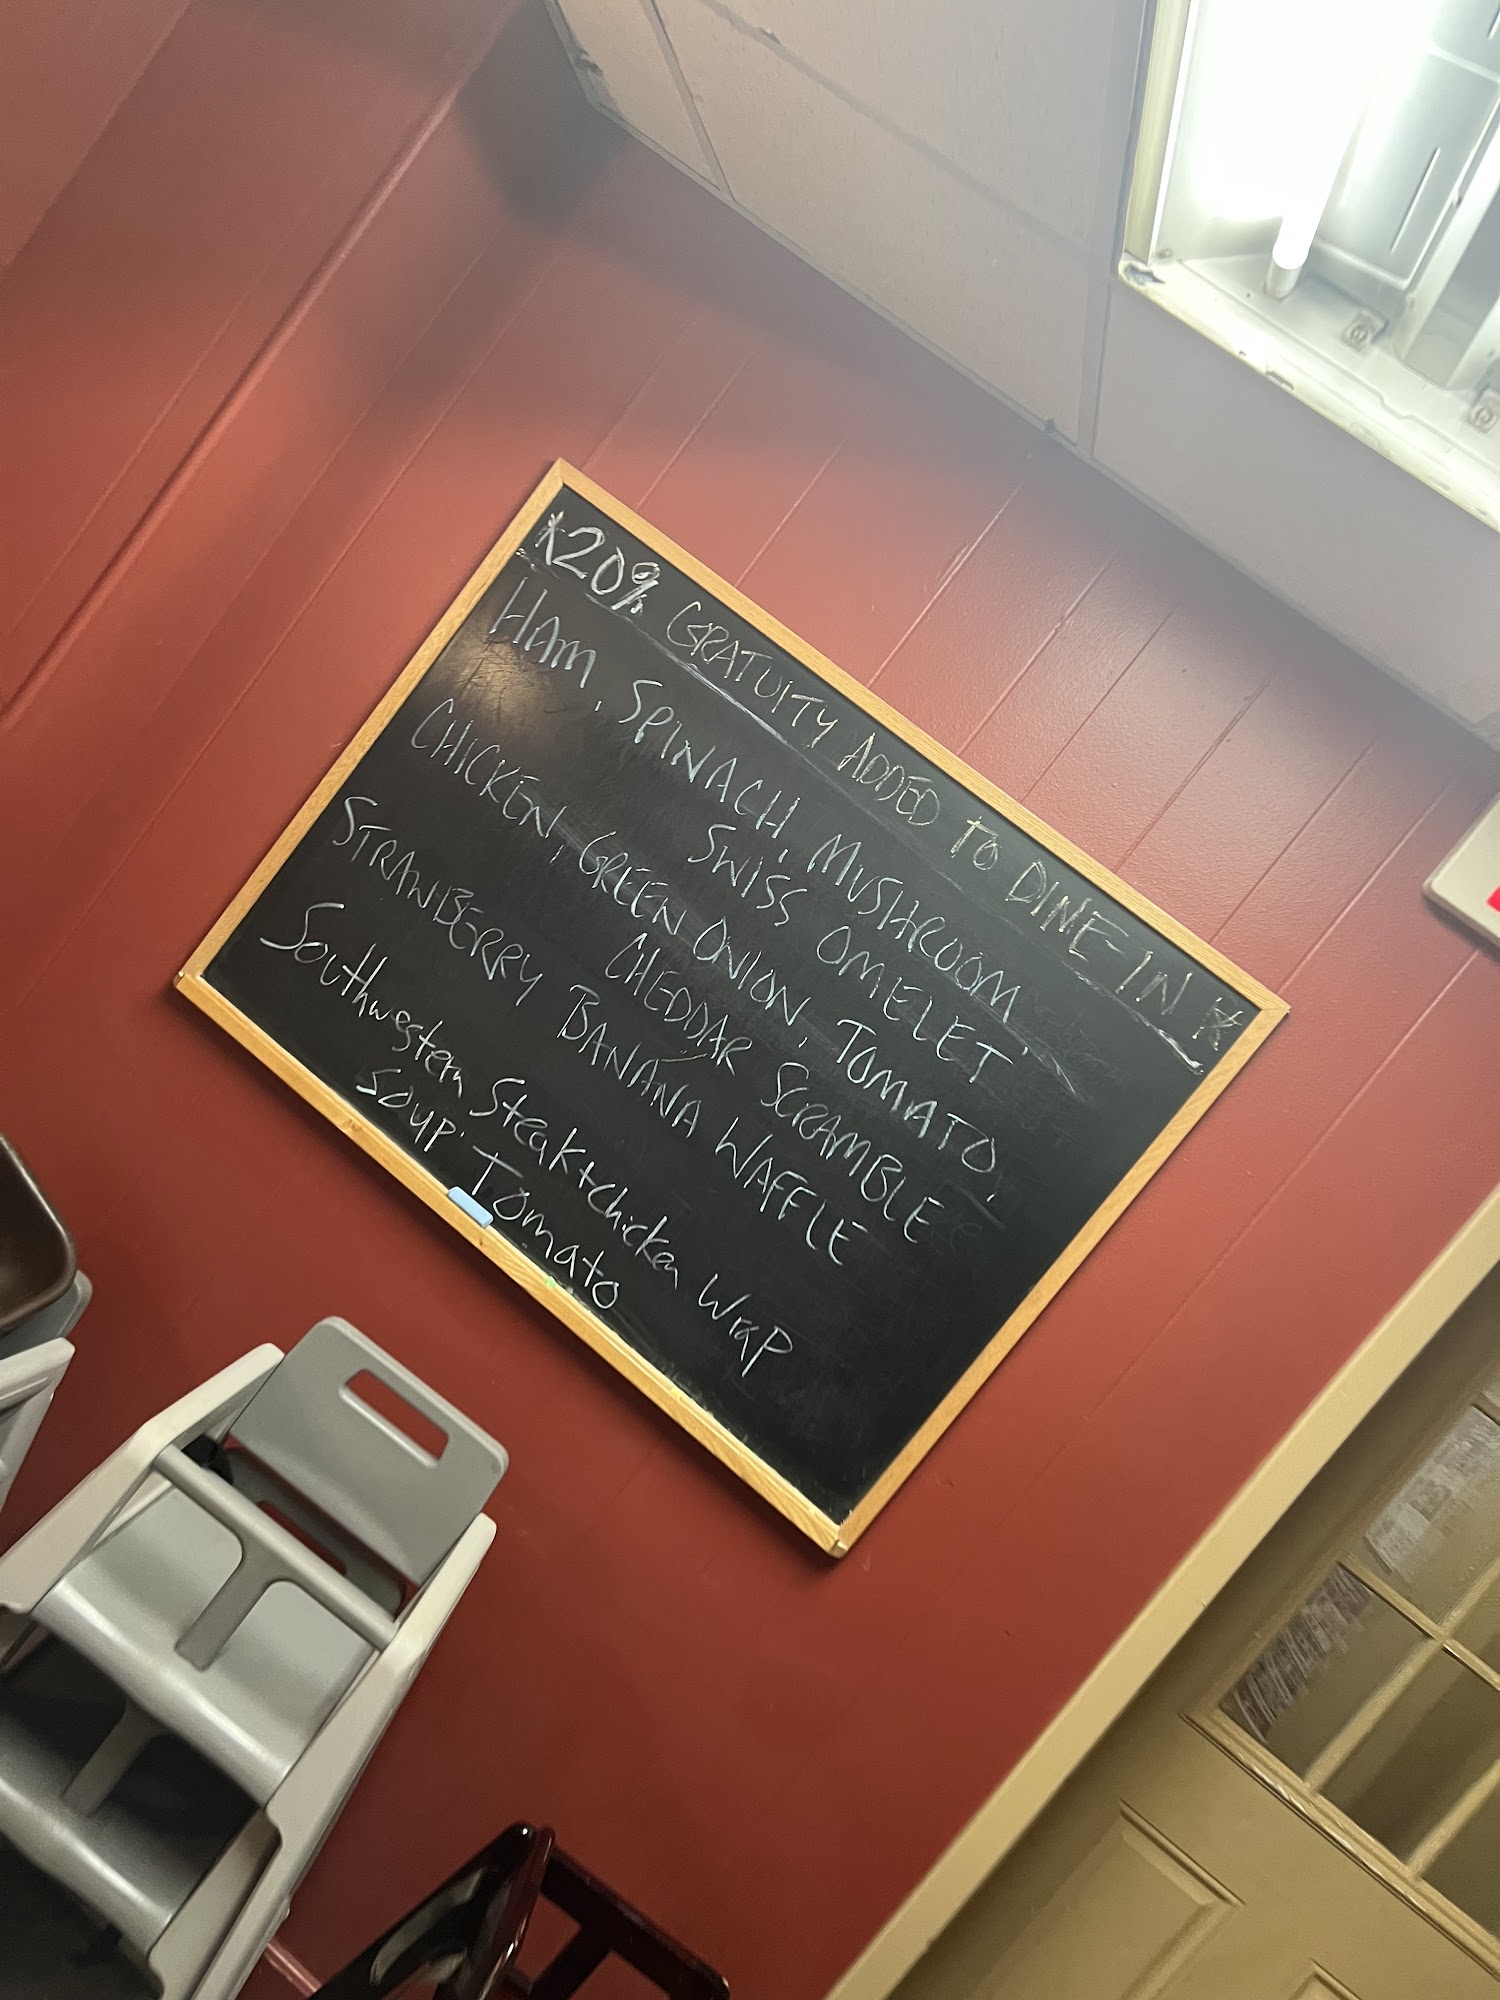 *20% GRATUITY ADDED TO DINE-IN *
HAM, SPINACH, MUSHROOM,
SWISS OMELET
CHICKEN, GREEN ONION, TOMATO,
CHEDDAR SCRAMBLE
STRAWBERRY BANANA WAFFLE
Southwestern Steak+Chicken Wrap
Soup: Tomato